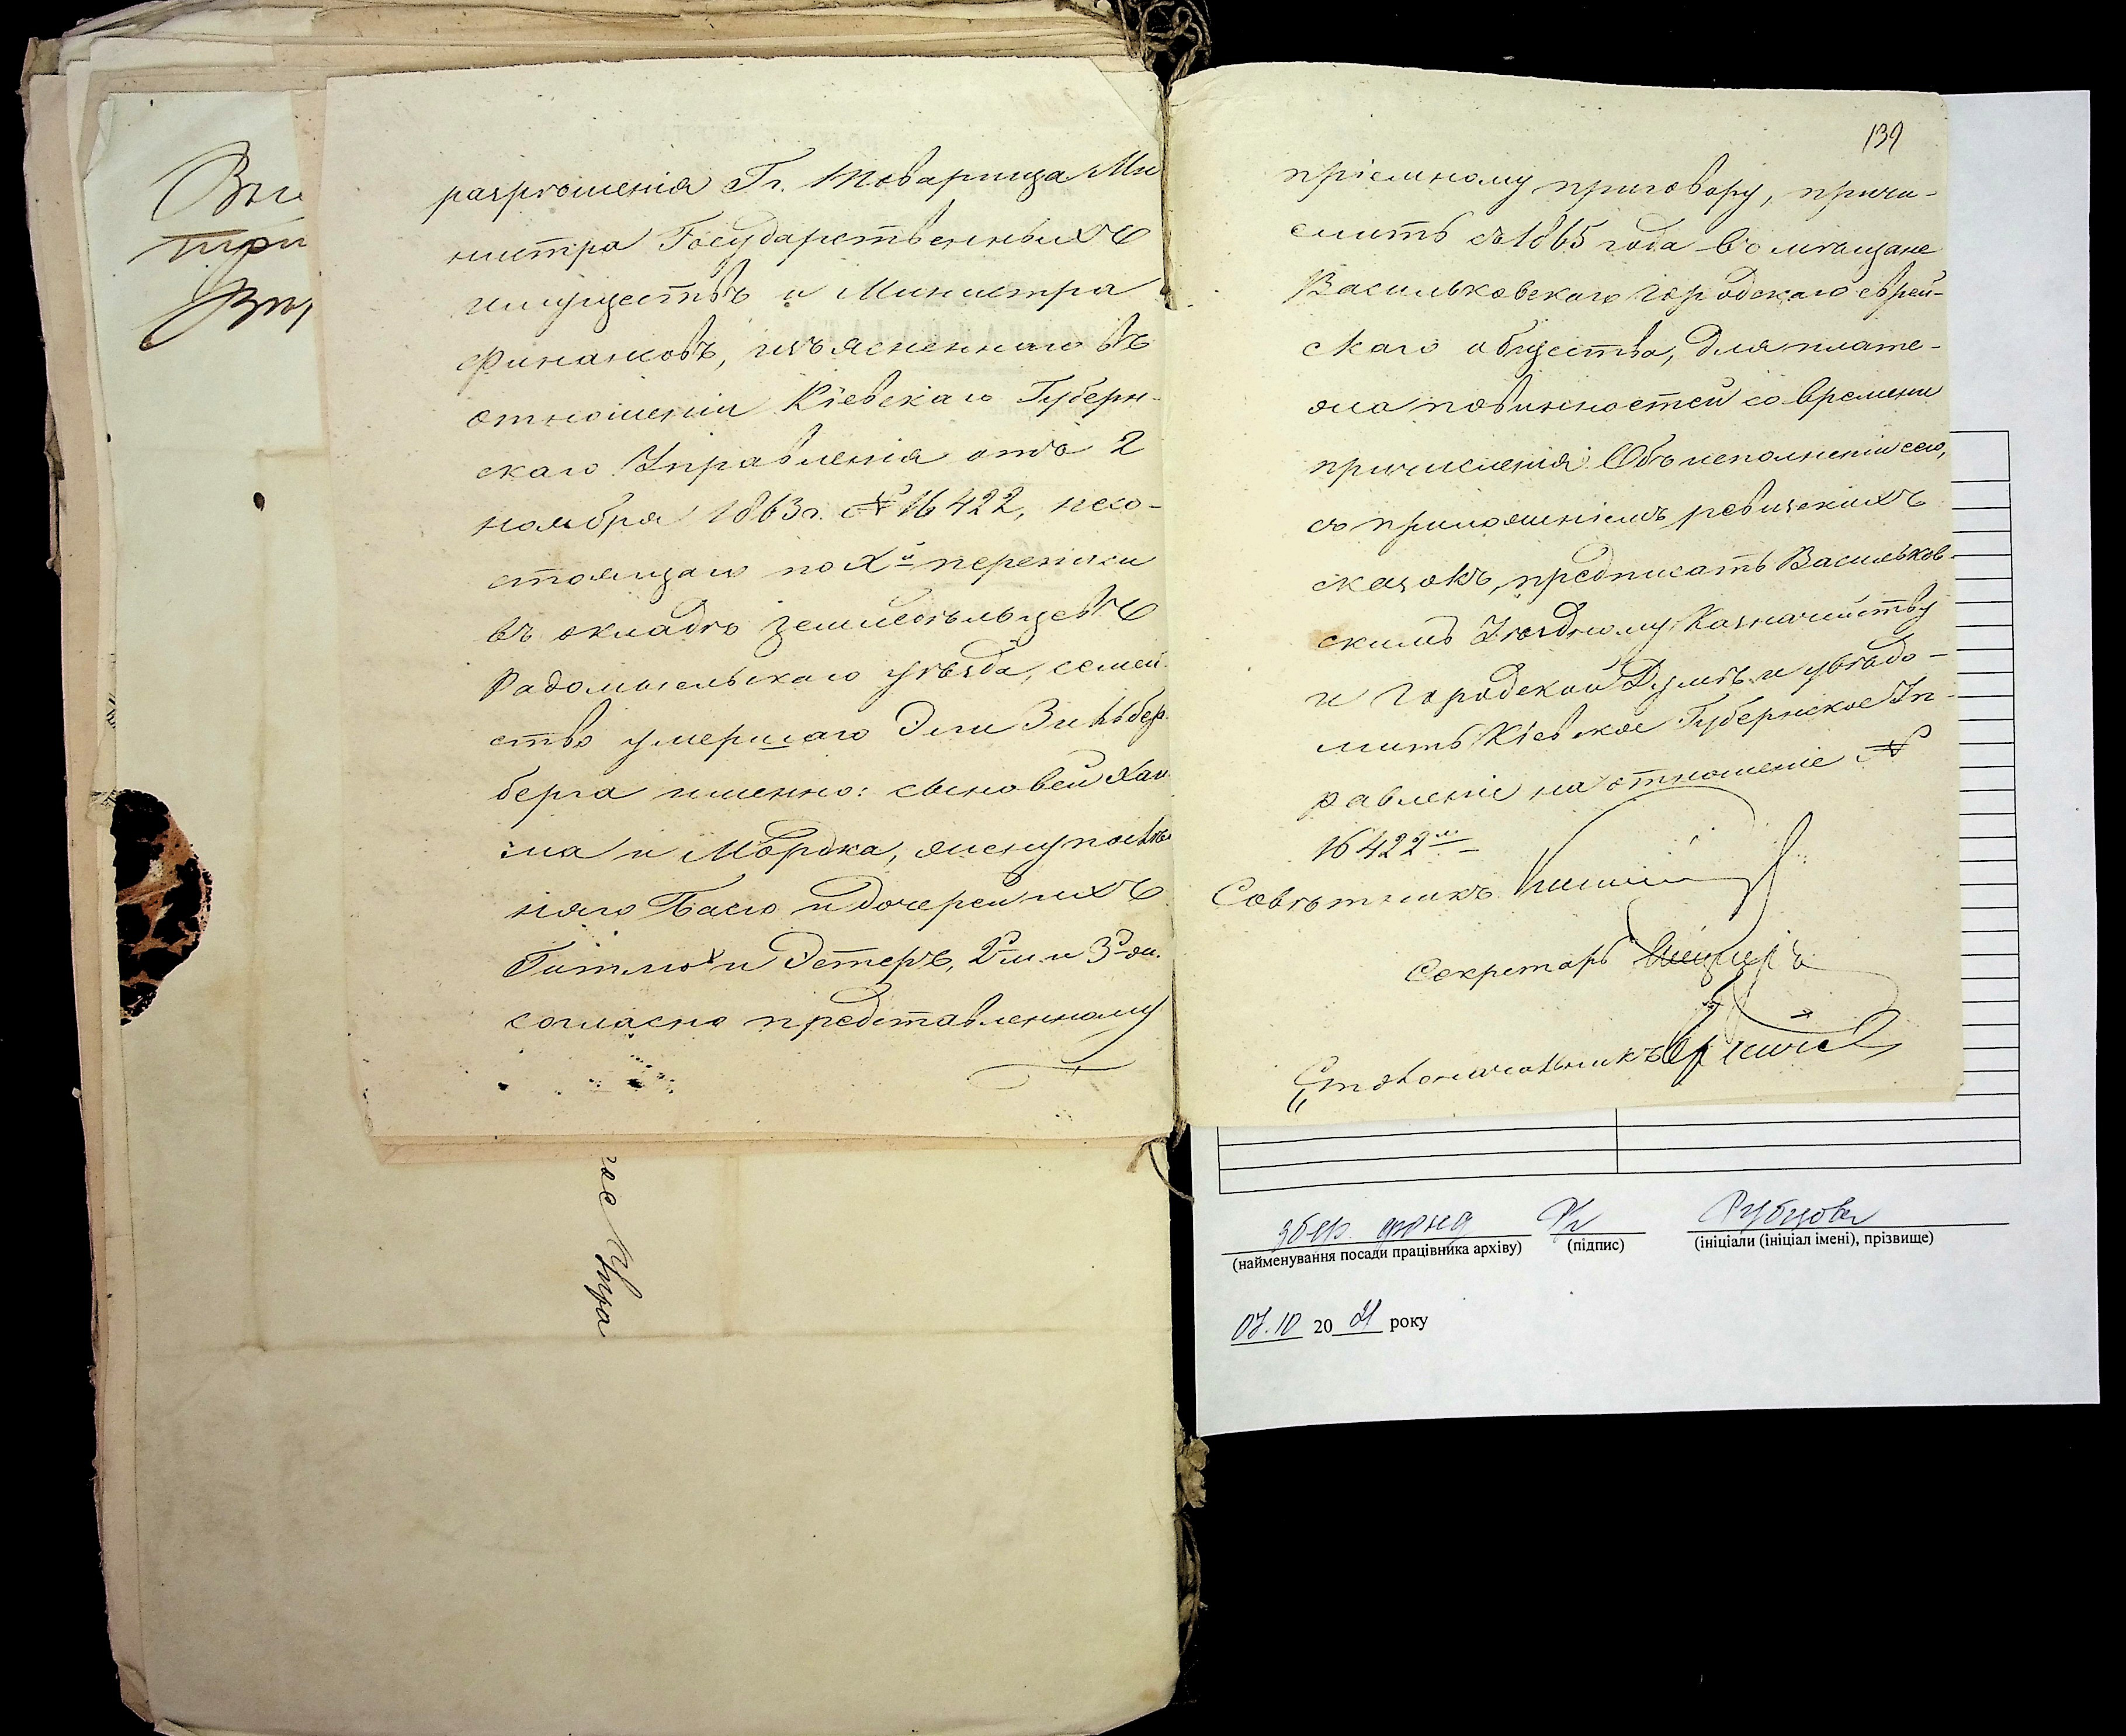 разрѣшенія Гг. Товарища Ми
нистра Государственныхъ
имуществъ и Министра
Финансовъ, изъясненнаго въ
отношеніи Кіевскаго Губерн-
скаго Управленія отъ 2
ноября 1863 г. № 16422, несо-
стоящаго по Х й переписи
въ окладѣ земледѣльцевъ
Радомысльскаго уѣзда, семей
ство умершаго Эли Зильбер
берга именно: сыновей Хаи
ма и Мордка, жену послѣд
няго Басю и дочерей ихъ
Гитлю и Эстеръ, 2 м. и 3 ж.
согласно представленному
139
пріемному приговору, причи-
слить съ 1865 года въ мѣщане
Васильковскаго городскаго еврей-
скаго общества, для плате-
жа повинностей со времени
причисленія. Объ исполненіи сего,
съ приложеніемъ ревизскихъ
сказокъ, предписать Васильков-
скимъ Уѣздному Казначейству
и Городской Думѣ и увѣдо-
мить Кіевское Губернское Уп-
равленіе на отношеніе №
16422 м.
Совѣтникъ
Секретарь
Столоначальникъ
ное Упра
збер. фонд
(найменування посади працівника архіву) (підпис) (ініціали (ініціал імені), прізвище)
Рубцова
07.10 2021 року